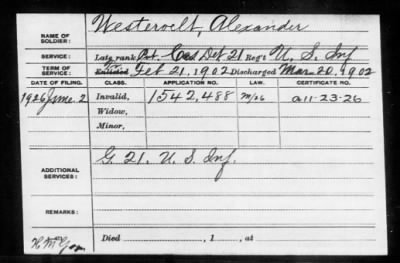 NAME OF SOLDIER: Westervelt, Alexander
SERVICE: Late rank Pvt. Cas. Det 21 Reg't U. S. Inf
TERM OF SERVICE: Enlisted Feb 21, 1902 Discharged Mar. 20, 1902
DATE OF FILING. CLASS. APPLICATION NO. LAW. CERTIFICATE NO.
1926 June 2 Invalid, 1542,488 a11-23-26
Widow,
Minor,
ADDITIONAL SERVICES: G. 21. U. S. Inf.
REMARKS:
Died , 1 , at